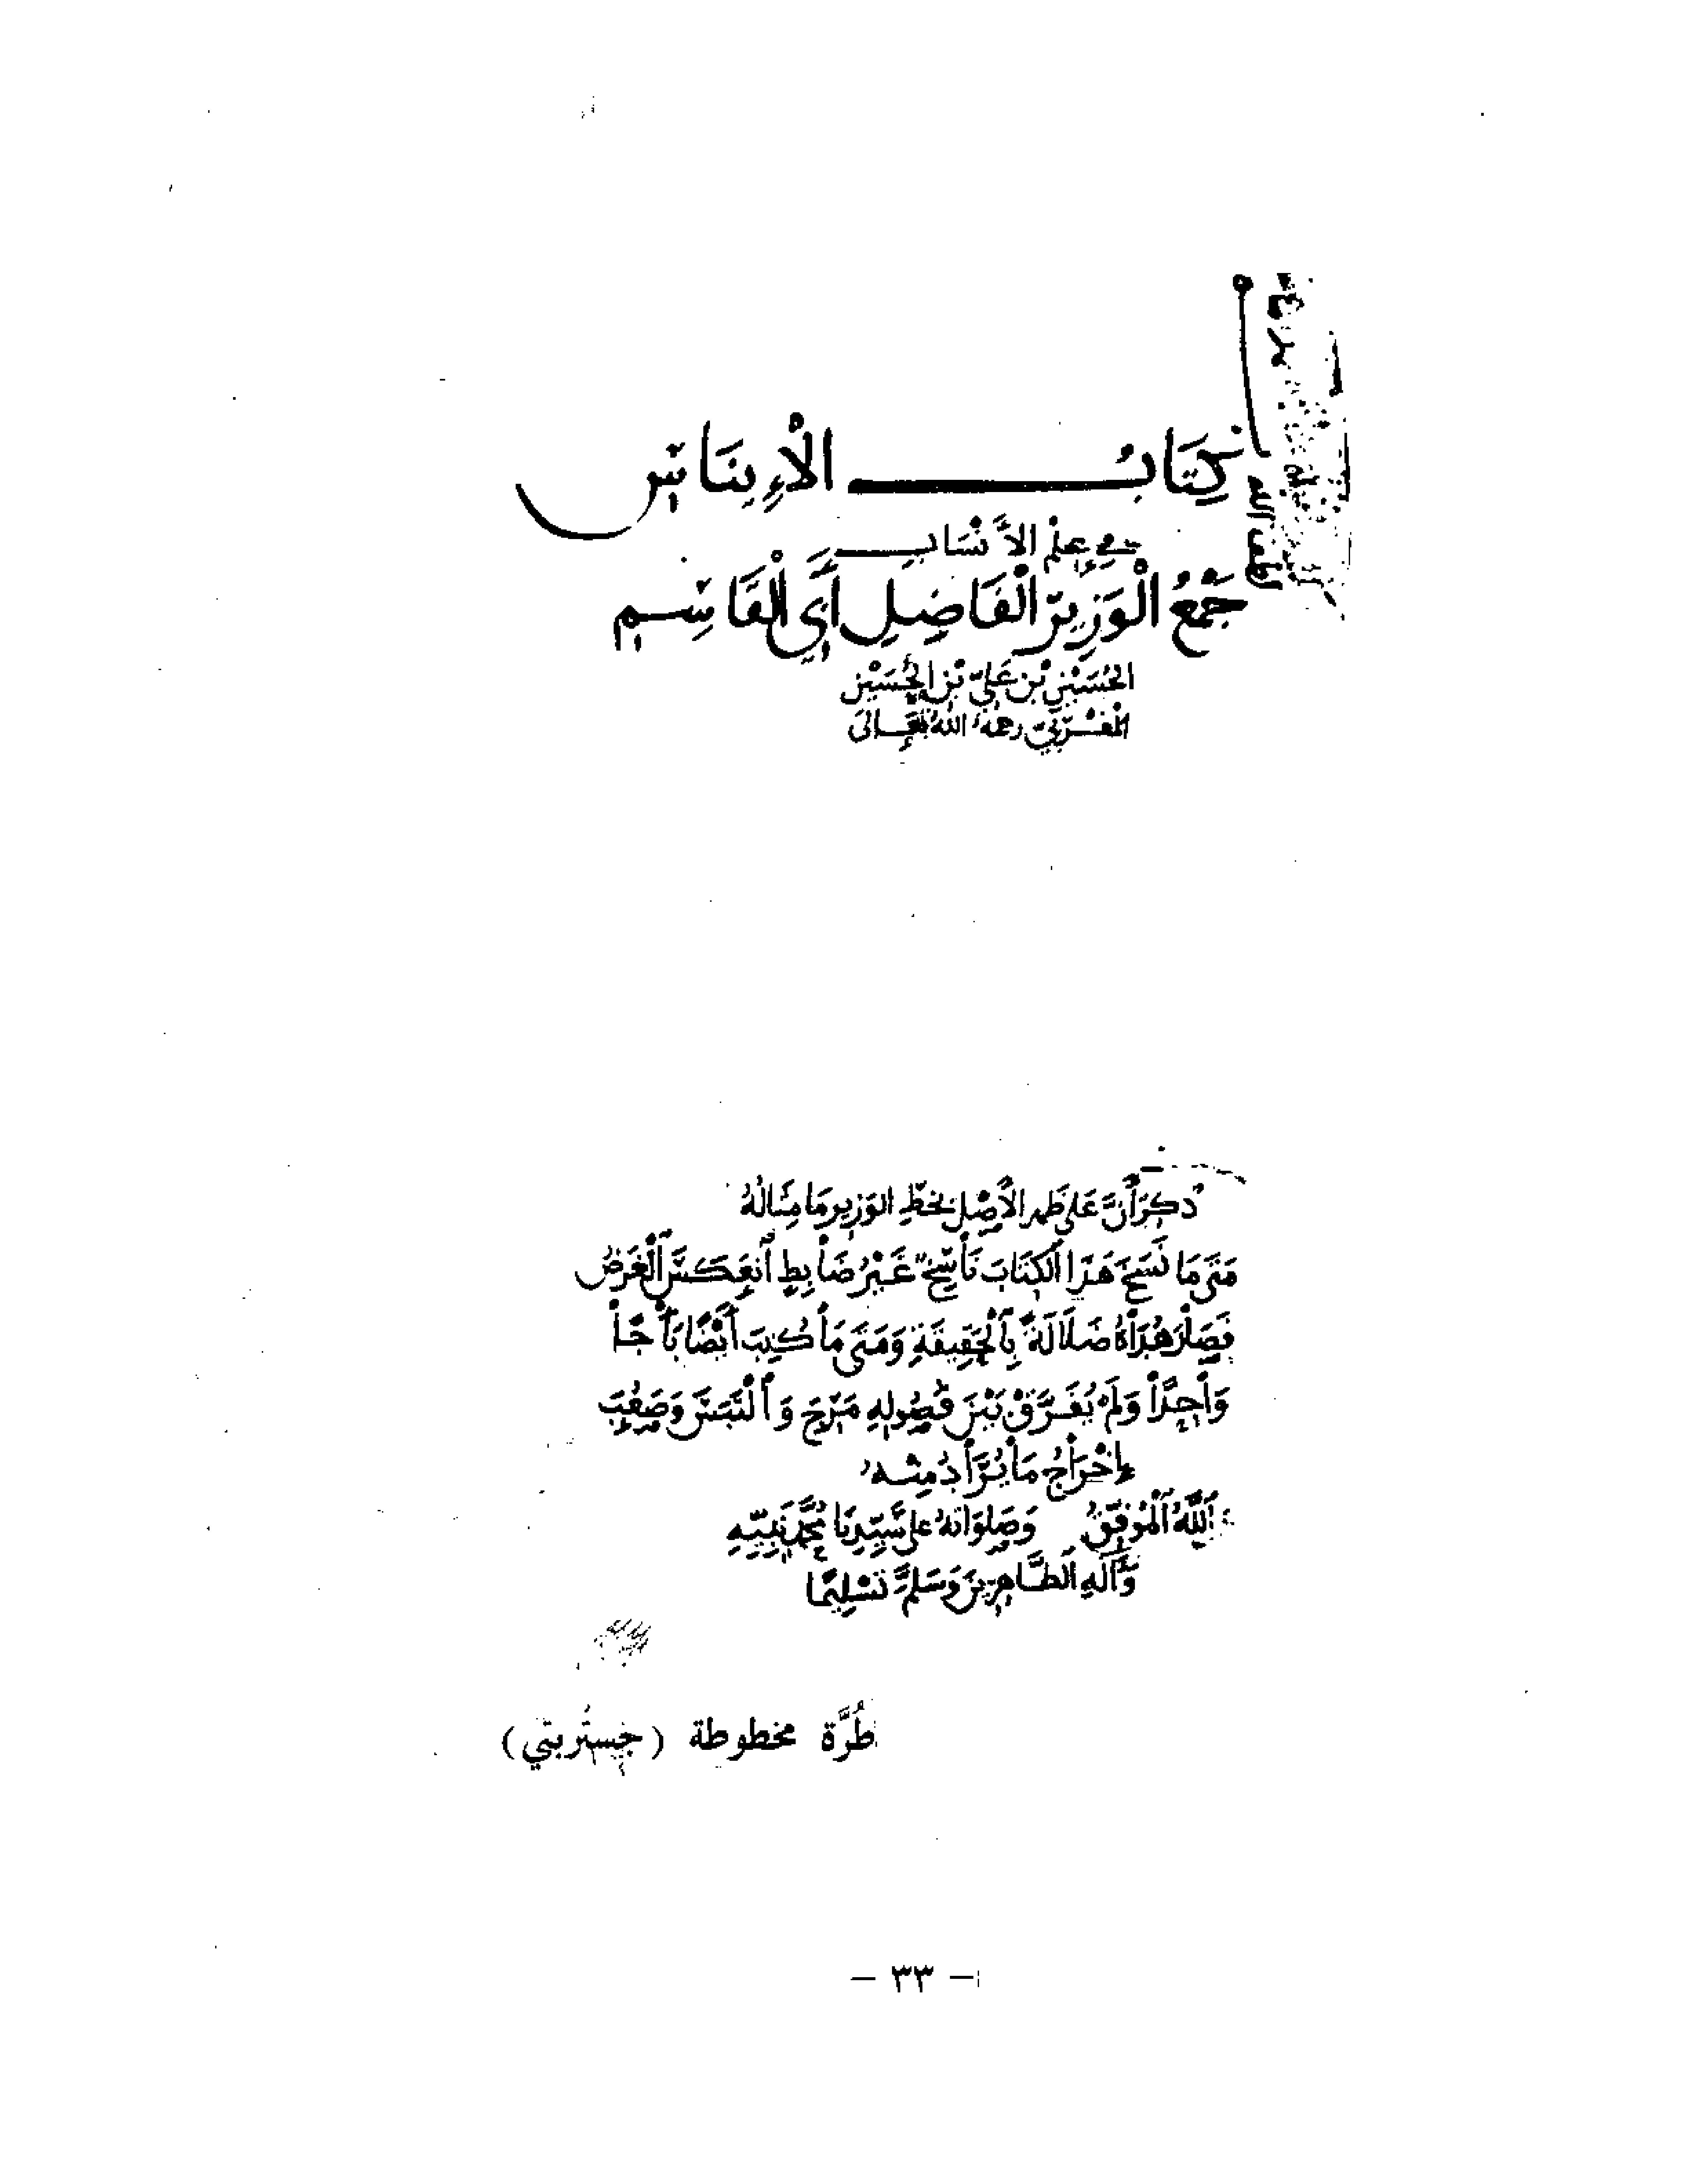 كِتَابُ الْإِينَاسِ
في عِلْمِ الأَنْسَابِ
جَمْعُ الْوَزِيرِ الْفَاضِلِ أَبِي الْقَاسِمِ
الحُسَيْنِ بْنِ عَلِيِّ بْنِ الحُسَيْنِ
المَغْرِبِيّ رحمهُ اللهُ تَعَالَى
لطف الله
ذُكِرَ أَنَّ عَلَى ظَهرِ الأَصْلِ بخطِّ الوَزِيرِ مَا مِثَالُهُ
مَتَى مَا نَسَخَ هَذَا الكِتَابَ نَاسِخٌ غَيْرُ ضَابِطٍ انْعَكَسَ الْغَرَضُ
فَصَارَ هُدَاهُ ضَلَالَةً بِالْحَقِيقَةِ وَمَتَى مَا كُتِبَ أَيْضًا بَابًا
وَاحِدًا وَلَمْ يُفَرَّقْ بَيْنَ فُصُولِهِ مَرَجَ وَالْتَبَسَ وَصَعُبَ
إِخْرَاجُ مَا يُرَادُ مِنْهُ
اللَّهُ الْمُوَفِّقُ وَصَلَوَاتُهُ عَلَى سَيِّدِنَا مُحَمَّدٍ نَبِيِّهِ
وَآلِهِ الطَّاهِرِينَ وَسَلَّمَ تَسْلِيمًا
طُرَّة مخطوطة (جِستُربتي)
- ٣٣ -